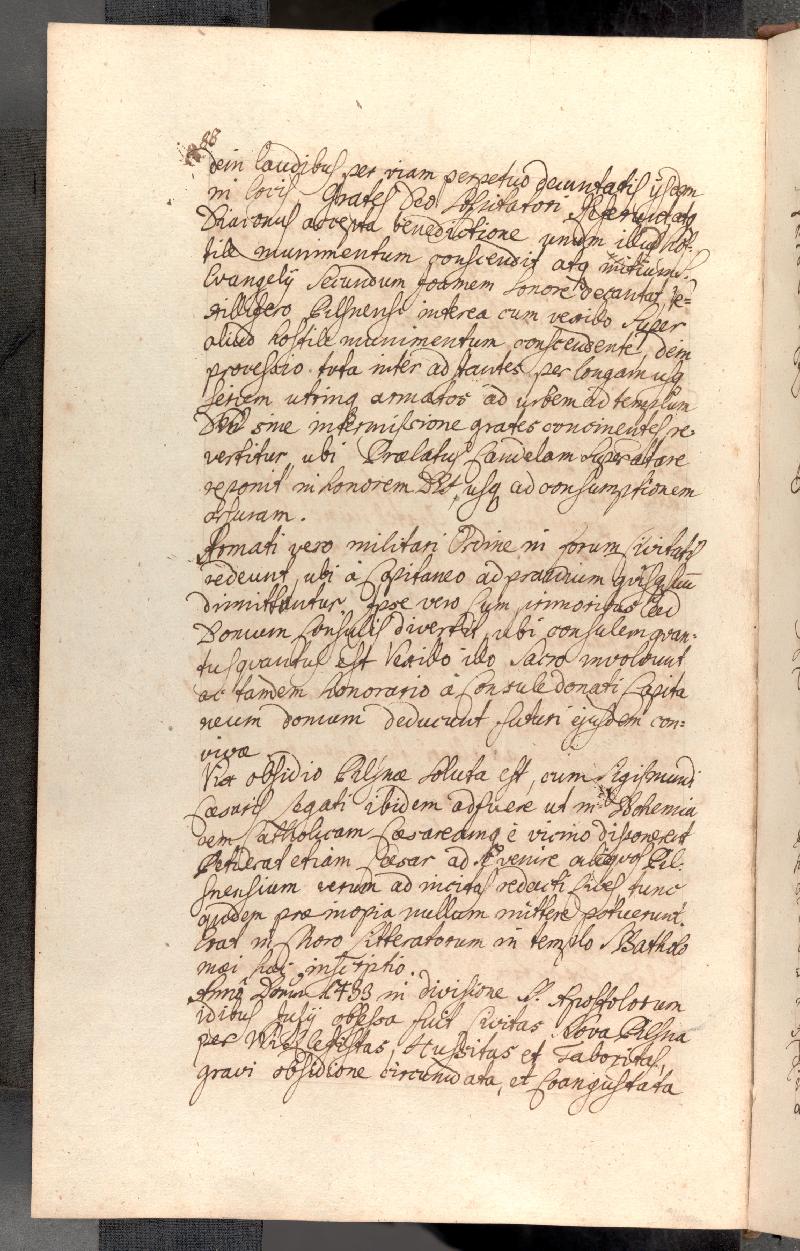 dein laudibus per viam perpetuo decantatis ijsdem
in locis grates Deo Refer atq
Diaconus accepta benedictione unum illud hos-
tile munimentum conscendit atq initium S.
Evangelij secundum Joãnem sonore decantat, Ve=
xillifero Pilsnensi interea cum vexillo super
aliud hostile munimentum conscendente, dein
processio tota inter adstantes per longam usq
seriem utrinq armatos ad urbem ad templum
sine intermissione grates concinentes re-
vertitur, ubi Prælatus Candelam super altare
reponit in honorem usq ad consumptionem
arsuram.
Armati vero militari Ordine in forum Civitatis
redeunt, ubi à Capitaneo ad prandium quisq suũ
dimittuntur. Ipse vero cum primoribus ad
Domum Consulis divertit, ubi consulem quan-
tus quantus est Vexillo illo sacro involvunt
ac tandem honorario à Consule donati Capita
neum domum deducunt futuri ejusdem con=
vivæ.
Vix obsidio Pilsnæ soluta est, cum Sigismundi
Cæsaris legati ibidem adfuere ut in Bohemia
rem Catholicam Cæsareamq è vicino disponerent
Petierat etiam Cæsar ad se venire aliquos Pil-
snensium verum ad incitas redacti Cives tunc
quidem præ inopia nullum mittere potuerunt.
Erat in Choro Litteratorum in templo S Bartholo
mæi hæc inscriptio.
Anno Domini 1433 in divisione S. Apostolorum
idibus Julij obsessa fuit Civitas Nova Pilsna
per Wiclefistas, Hussitas et Taboritas,
gravi obsidione circumdata, et Coangustata